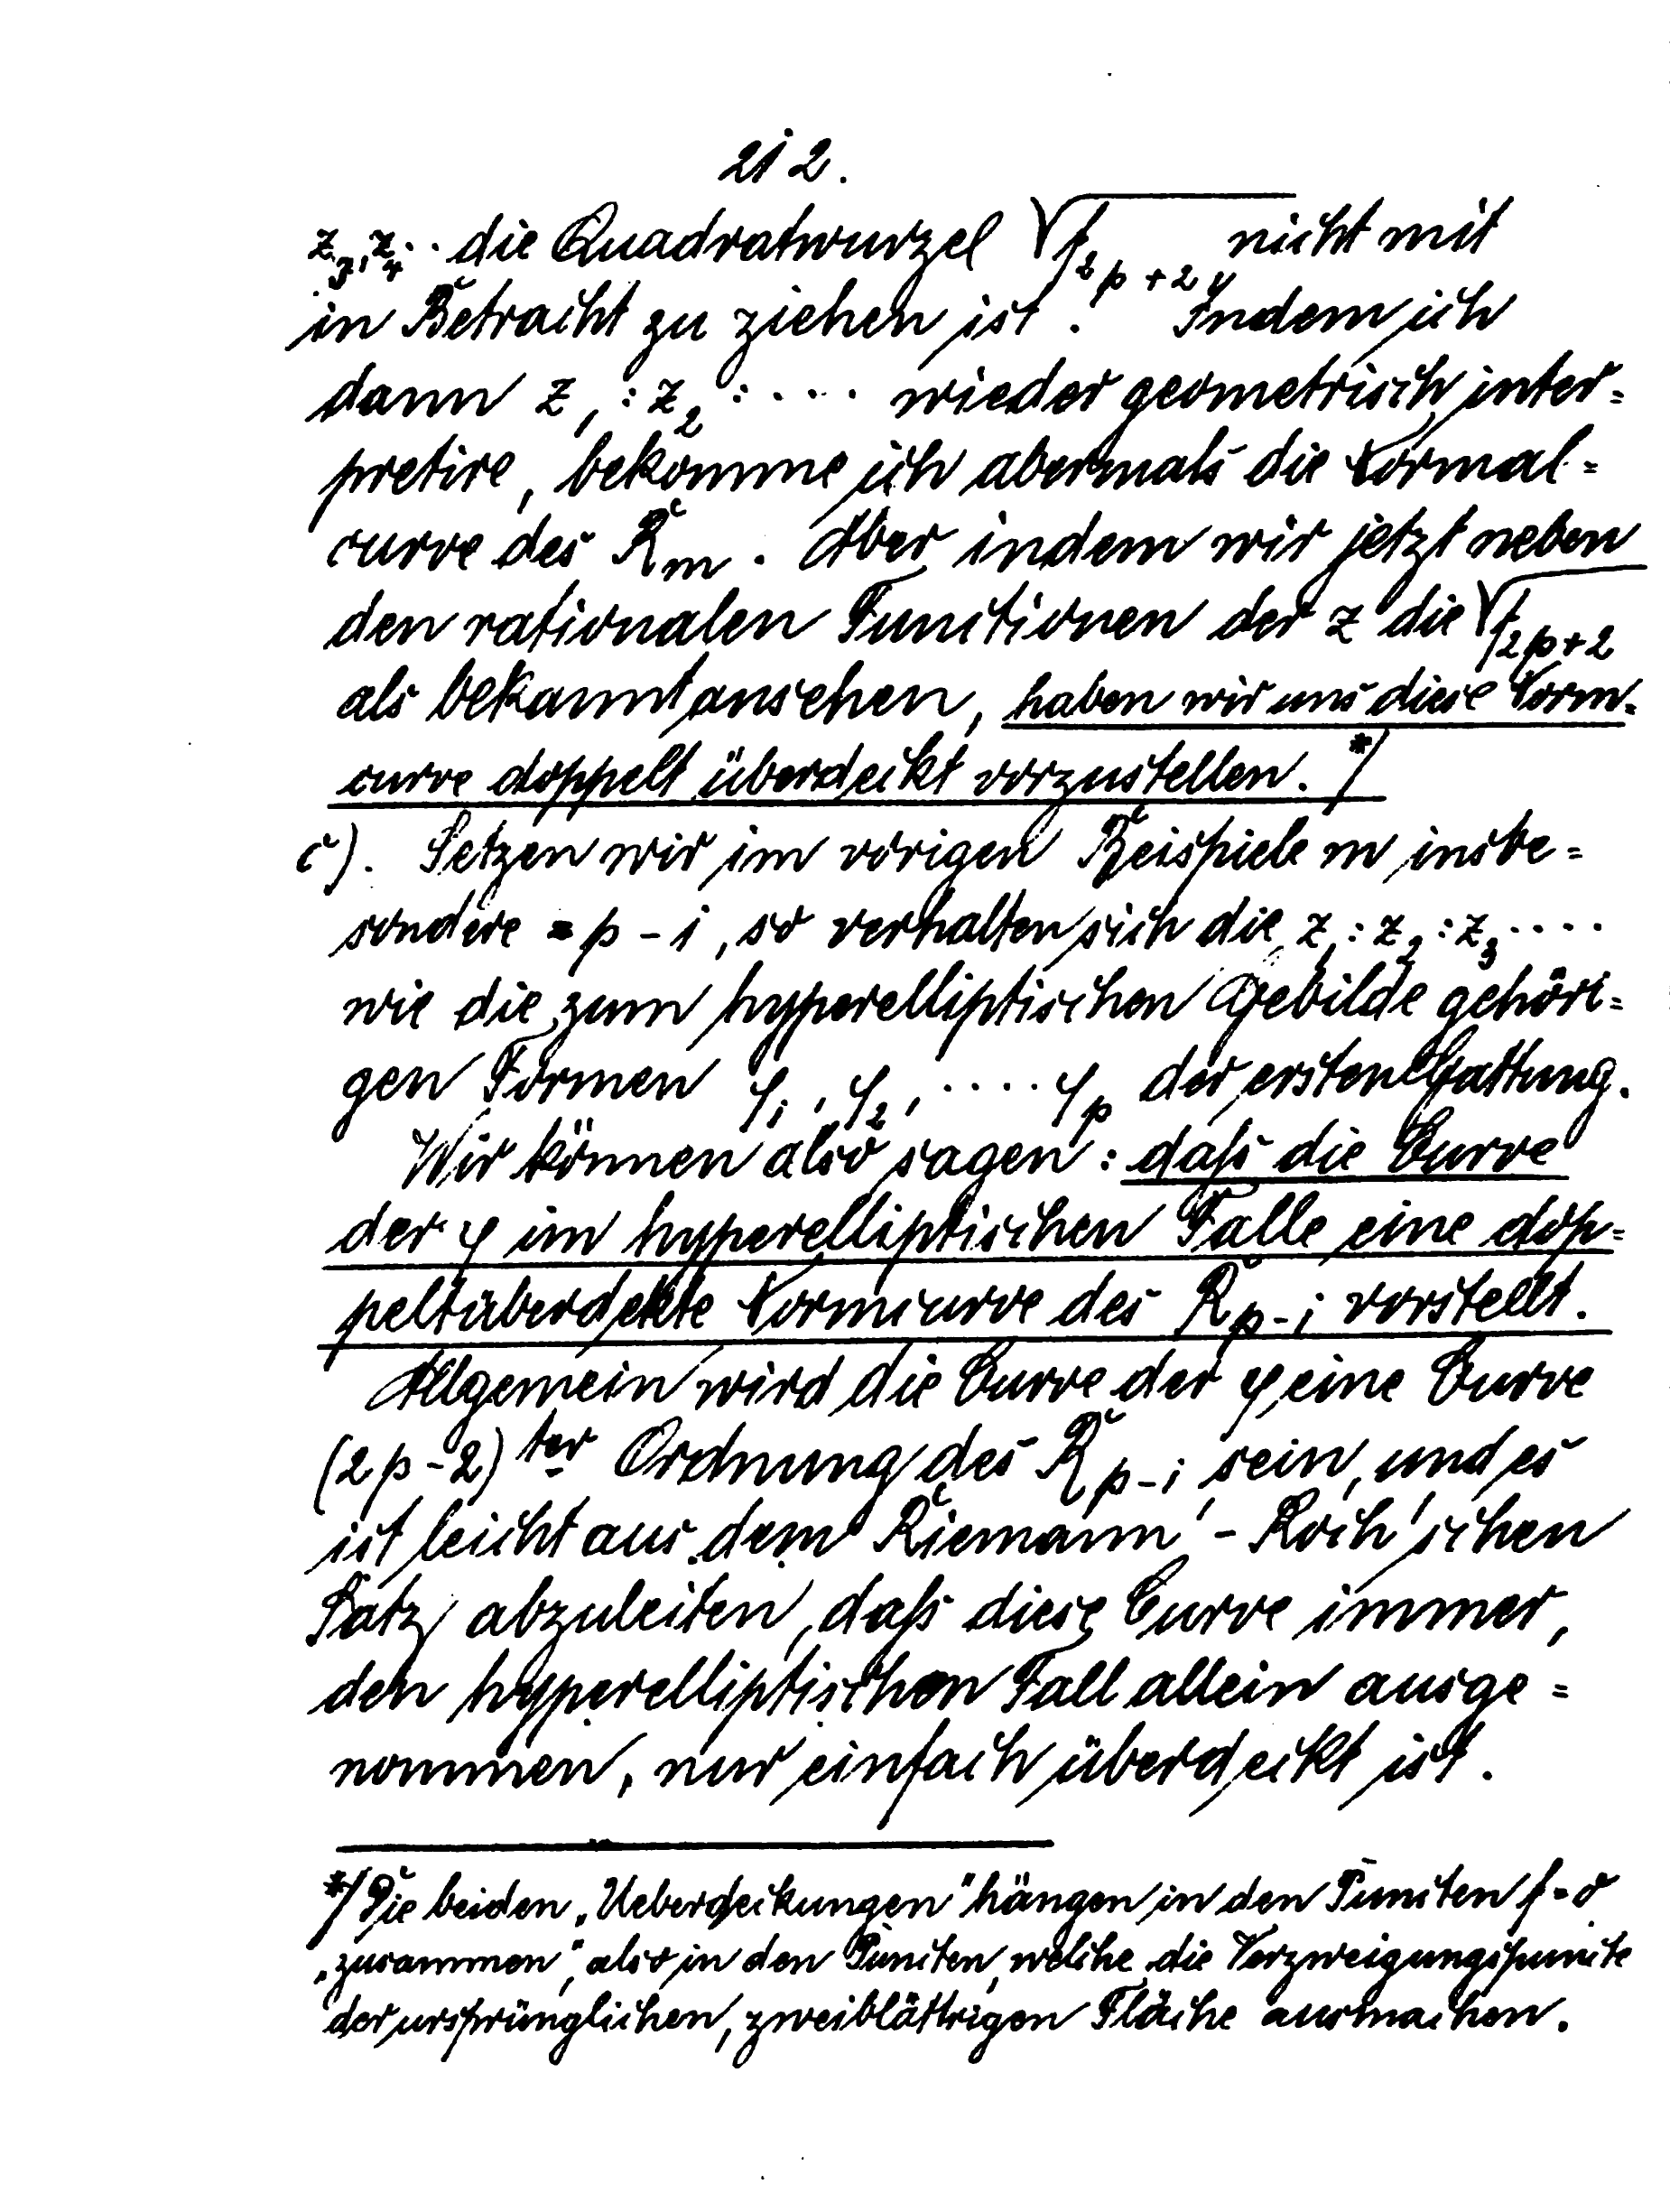 212.
z₃, z₄ ·· die Quadratwurzel √f₂ₚ₊₂ nicht mit
in Betracht zu ziehen ist. Indem ich
dann z₁ : z₂ : ···· wieder geometrisch inter=
pretire, bekomme ich abermals die Normal=
curve des Rₘ. Aber indem wir jetzt neben
den rationalen Functionen der z die √f₂ₚ₊₂
als bekannt ansehen, haben wir uns diese Norm=
curve doppelt überdeckt vorzustellen. *)
c). Setzen wir im vorigen Beispiele m insbe=
sondere = p - 1, so verhalten sich die z₁ : z₂ : z₃ ····
wie die zum hyperelliptischen Gebilde gehöri=
gen Formen φ₁, φ₂, ···· φₚ der ersten Gattung.
Wir können also sagen: daß die Curve
der φ im hyperelliptischen Falle eine dop=
peltüberdekte Normcurve des Rₚ₋₁ vorstellt.
Allgemein wird die Curve der φ eine Curve
(2p-2)ter Ordnung des Rₚ₋₁ sein, und es
ist leicht aus dem Riemann'-Roch'schen
Satz abzuleiten, daß diese Curve immer,
den hyperelliptischen Fall allein ausge=
nommen, nur einfach überdeckt ist.
*) Die beiden „Ueberdeckungen" hängen in den Puncten f=0
„zusammen", also in den Puncten, welche die Verzweigungspuncte
der ursprünglichen, zweiblättrigen Fläche ausmachen.